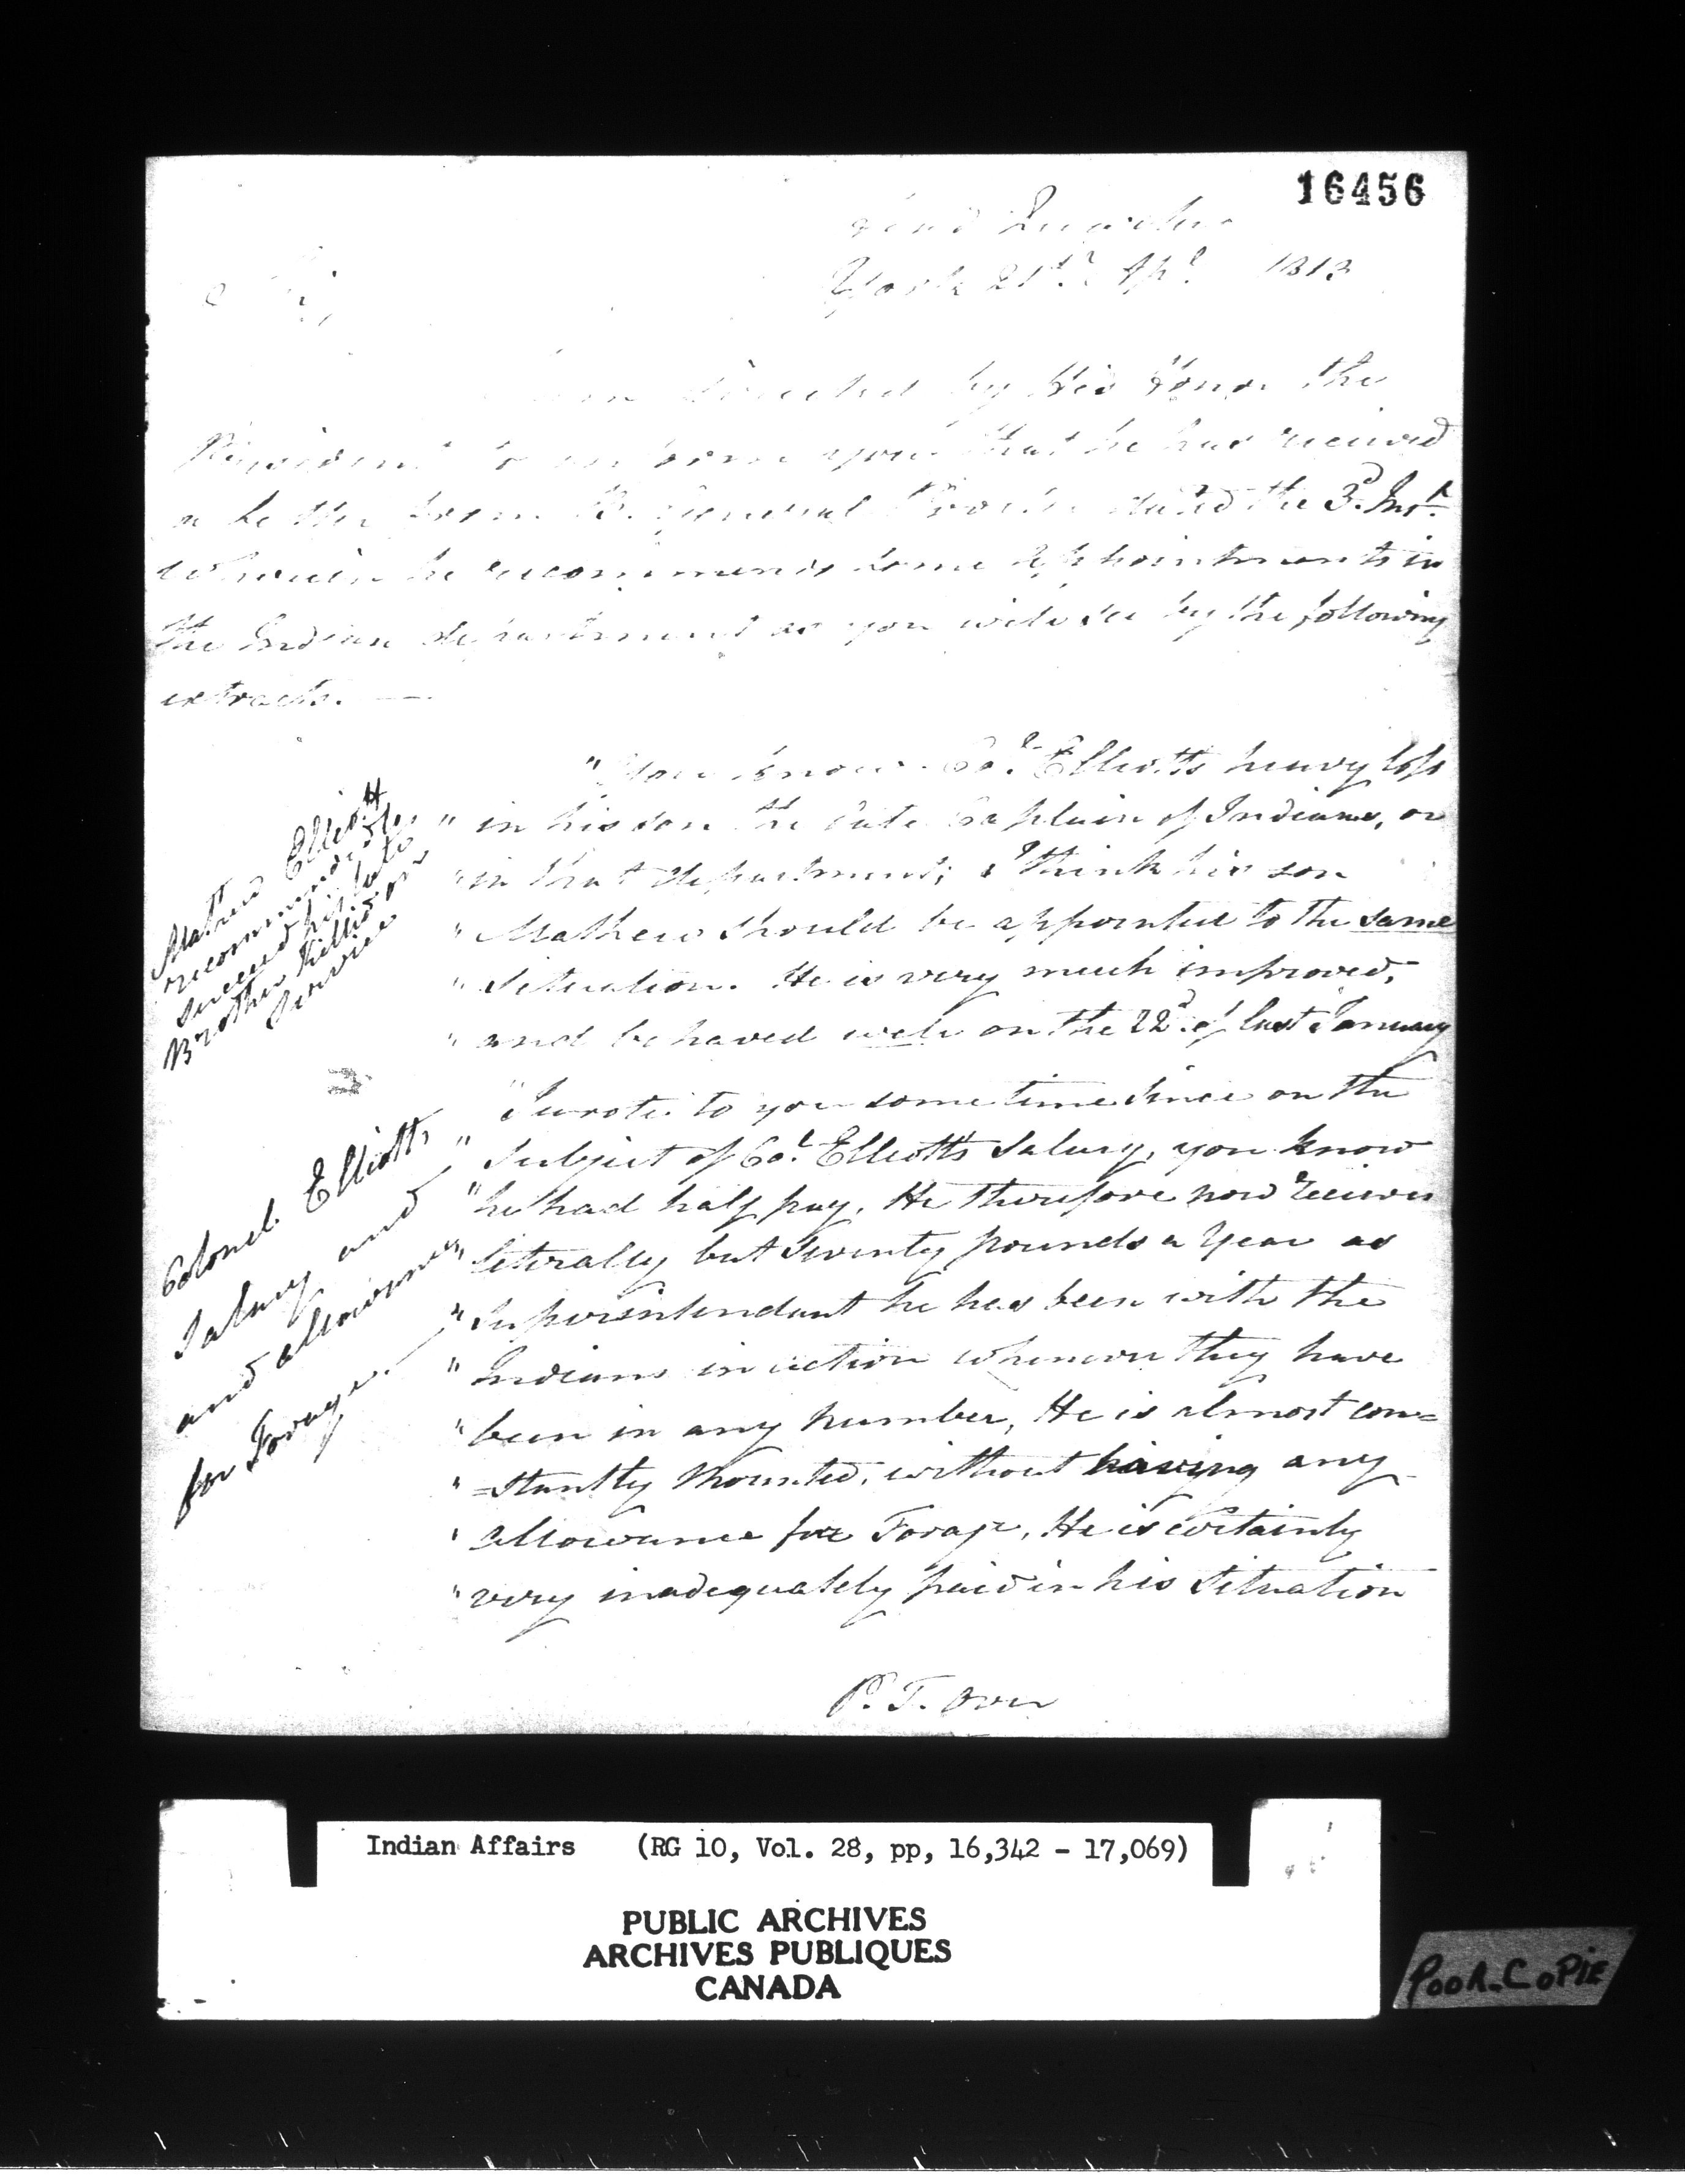 16456
Head Quarters
York 21st. Apl. 1813
Sir,
am directed by His Honor the
President to inform you that he has received
a letter from B. General Procter dated the 3d. Inst.
wherein he recommends some appointments in
the Indian department as you will see by the following
extracts. —
"You know Col. Elliotts heavy loss
" in his son the late Captain of Indians, or
" in that department; I think his son
" Mathew should be appointed to the same
" Situation. He is very much improved,
" and behaved well on the 22d. of last January
Mathew Elliott
recommended to
succeed his late
Brother Killed on
Service
"I wrote to you some time since on the
" Subject of Col. Elliott's Salary, you know
" he had half pay. He therefore now receives
" literally but twenty pounds a Year as
" Superintendant he has been with the
" Indians in action whenever they have
" been in any number, He is almost con=
" =stantly Mounted, without having any
" allowance for Forage, He is certainly
" very inadequately paid in his Situation
Colonel Elliott,
Salary and
and allowance
for Forage. —
P. T. Over
Indian Affairs (RG 10, Vol. 28, pp, 16,342 - 17,069)
PUBLIC ARCHIVES
ARCHIVES PUBLIQUES
CANADA
POOR COPIE